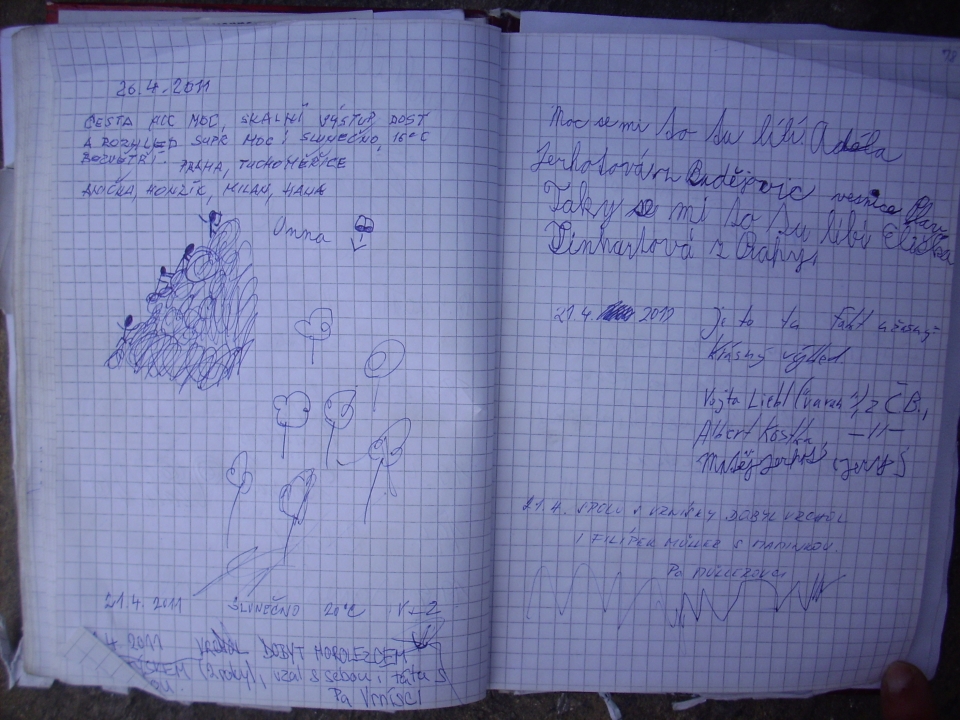 26.4.2011
CESTA MOC, SKALNÍ VÝSTUP DOST
A ROZHLED SUPR MOC! SLUNEČNO, 16°C
BEZVĚTŘÍ. PRAHA, TUCHOMĚŘICE
HONZÍK, MILAN, HANA
21.4.2011 SLUNEČNO 20°C
2011 VRCHOL DOBYT HOROLEZCEM
(2 roky), vzal s sebou i tátu s
Pa Vrníści
78
Moc se mi to tu líbí. Adéla
Jerhotová z Budějovic vesnice
Taky se mi to tu líbí Eliška
Linhartová z
21.4. 2011 Je to tu fakt úžasný
Krásný výhled.
Vojta Liebl z ČB.,
Albert Kostka, -11-
Matěj
21.4. SPOLU S VRNÍKY DOBYL VRCHOL
I FILÍPEK MÜLLER S MAMINKOU.
Pa MÜLLEROVCI